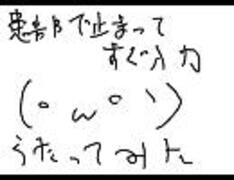 患部で止まって
すぐ入力
(゜ω゜ヽ)
うたってみた